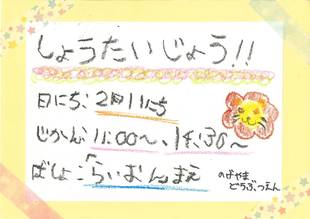 しょうたいじょう!!
日にち:2月11にち
じかん:11:00〜、14:30〜
ばしょ:「らいおんまえ
のげやま
どうぶつえん